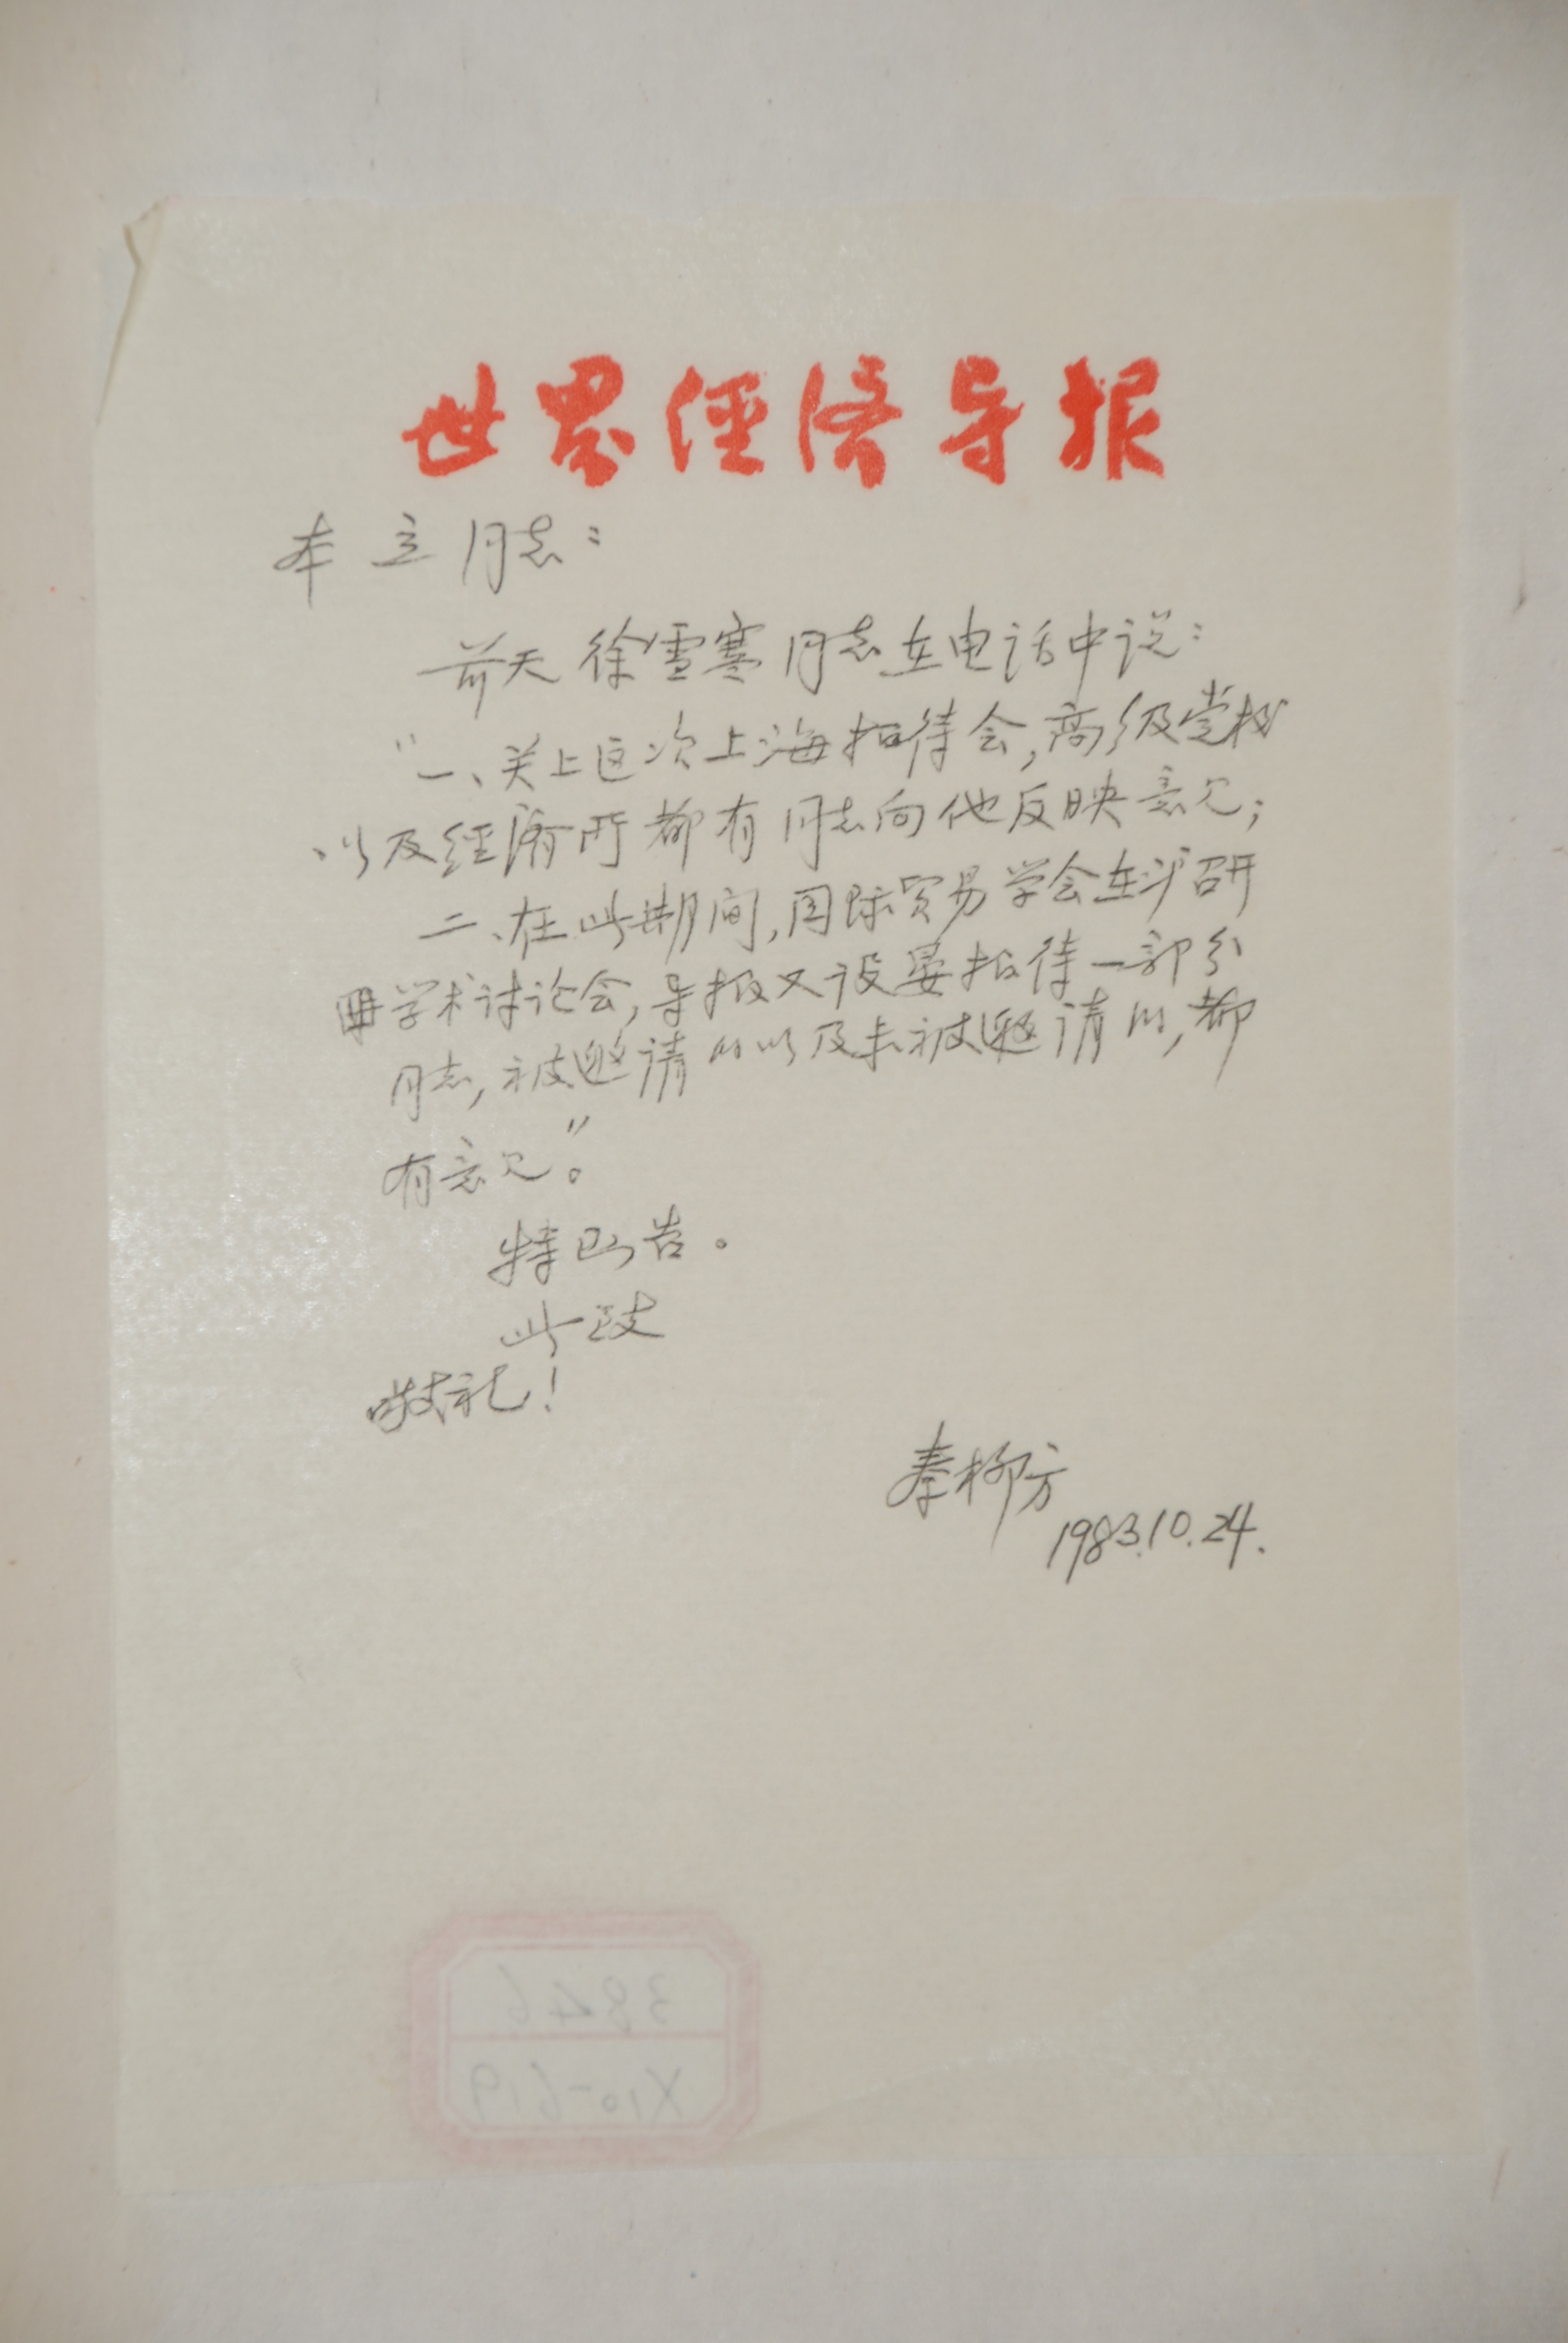 世界经济导报
本立同志：
前天徐雪寒同志在电话中说：
“一、关上这次上海招待会，高级党校
以及经济所都有同志向他反映意见；
二、在此期间，国际贸易学会在沪召开
学术讨论会，导报又设宴招待一部分
同志，被邀请的以及未被邀请的，都
有意见”。
特函告。
此致
敬礼！
秦柳方
1983.10.24.
3846
X10-619